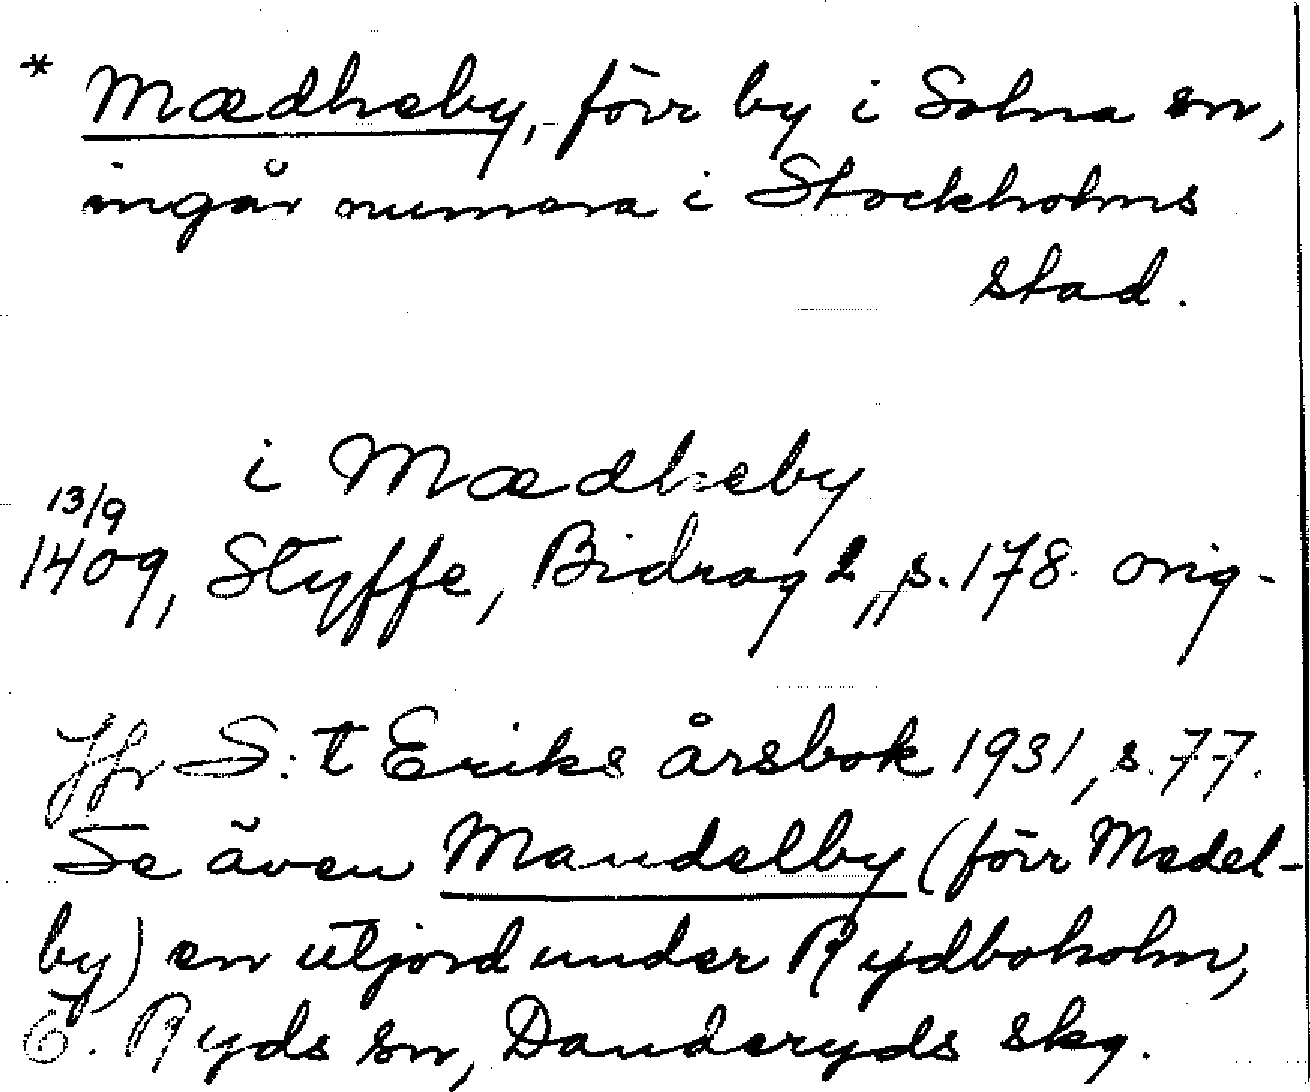 * Mædheby, förr by i Solna sn,
ingår numera i Stockholms
stad.
i Mædheby
13/9
1409, Styffe, Bidrag 2, s. 178. orig.
Jfr S:t Eriks årsbok 1931, s. 77.
Se även Mandelby (förr Medel-
by) en utjord under Rydboholm,
Ö. Ryds sn, Danderyds skg.